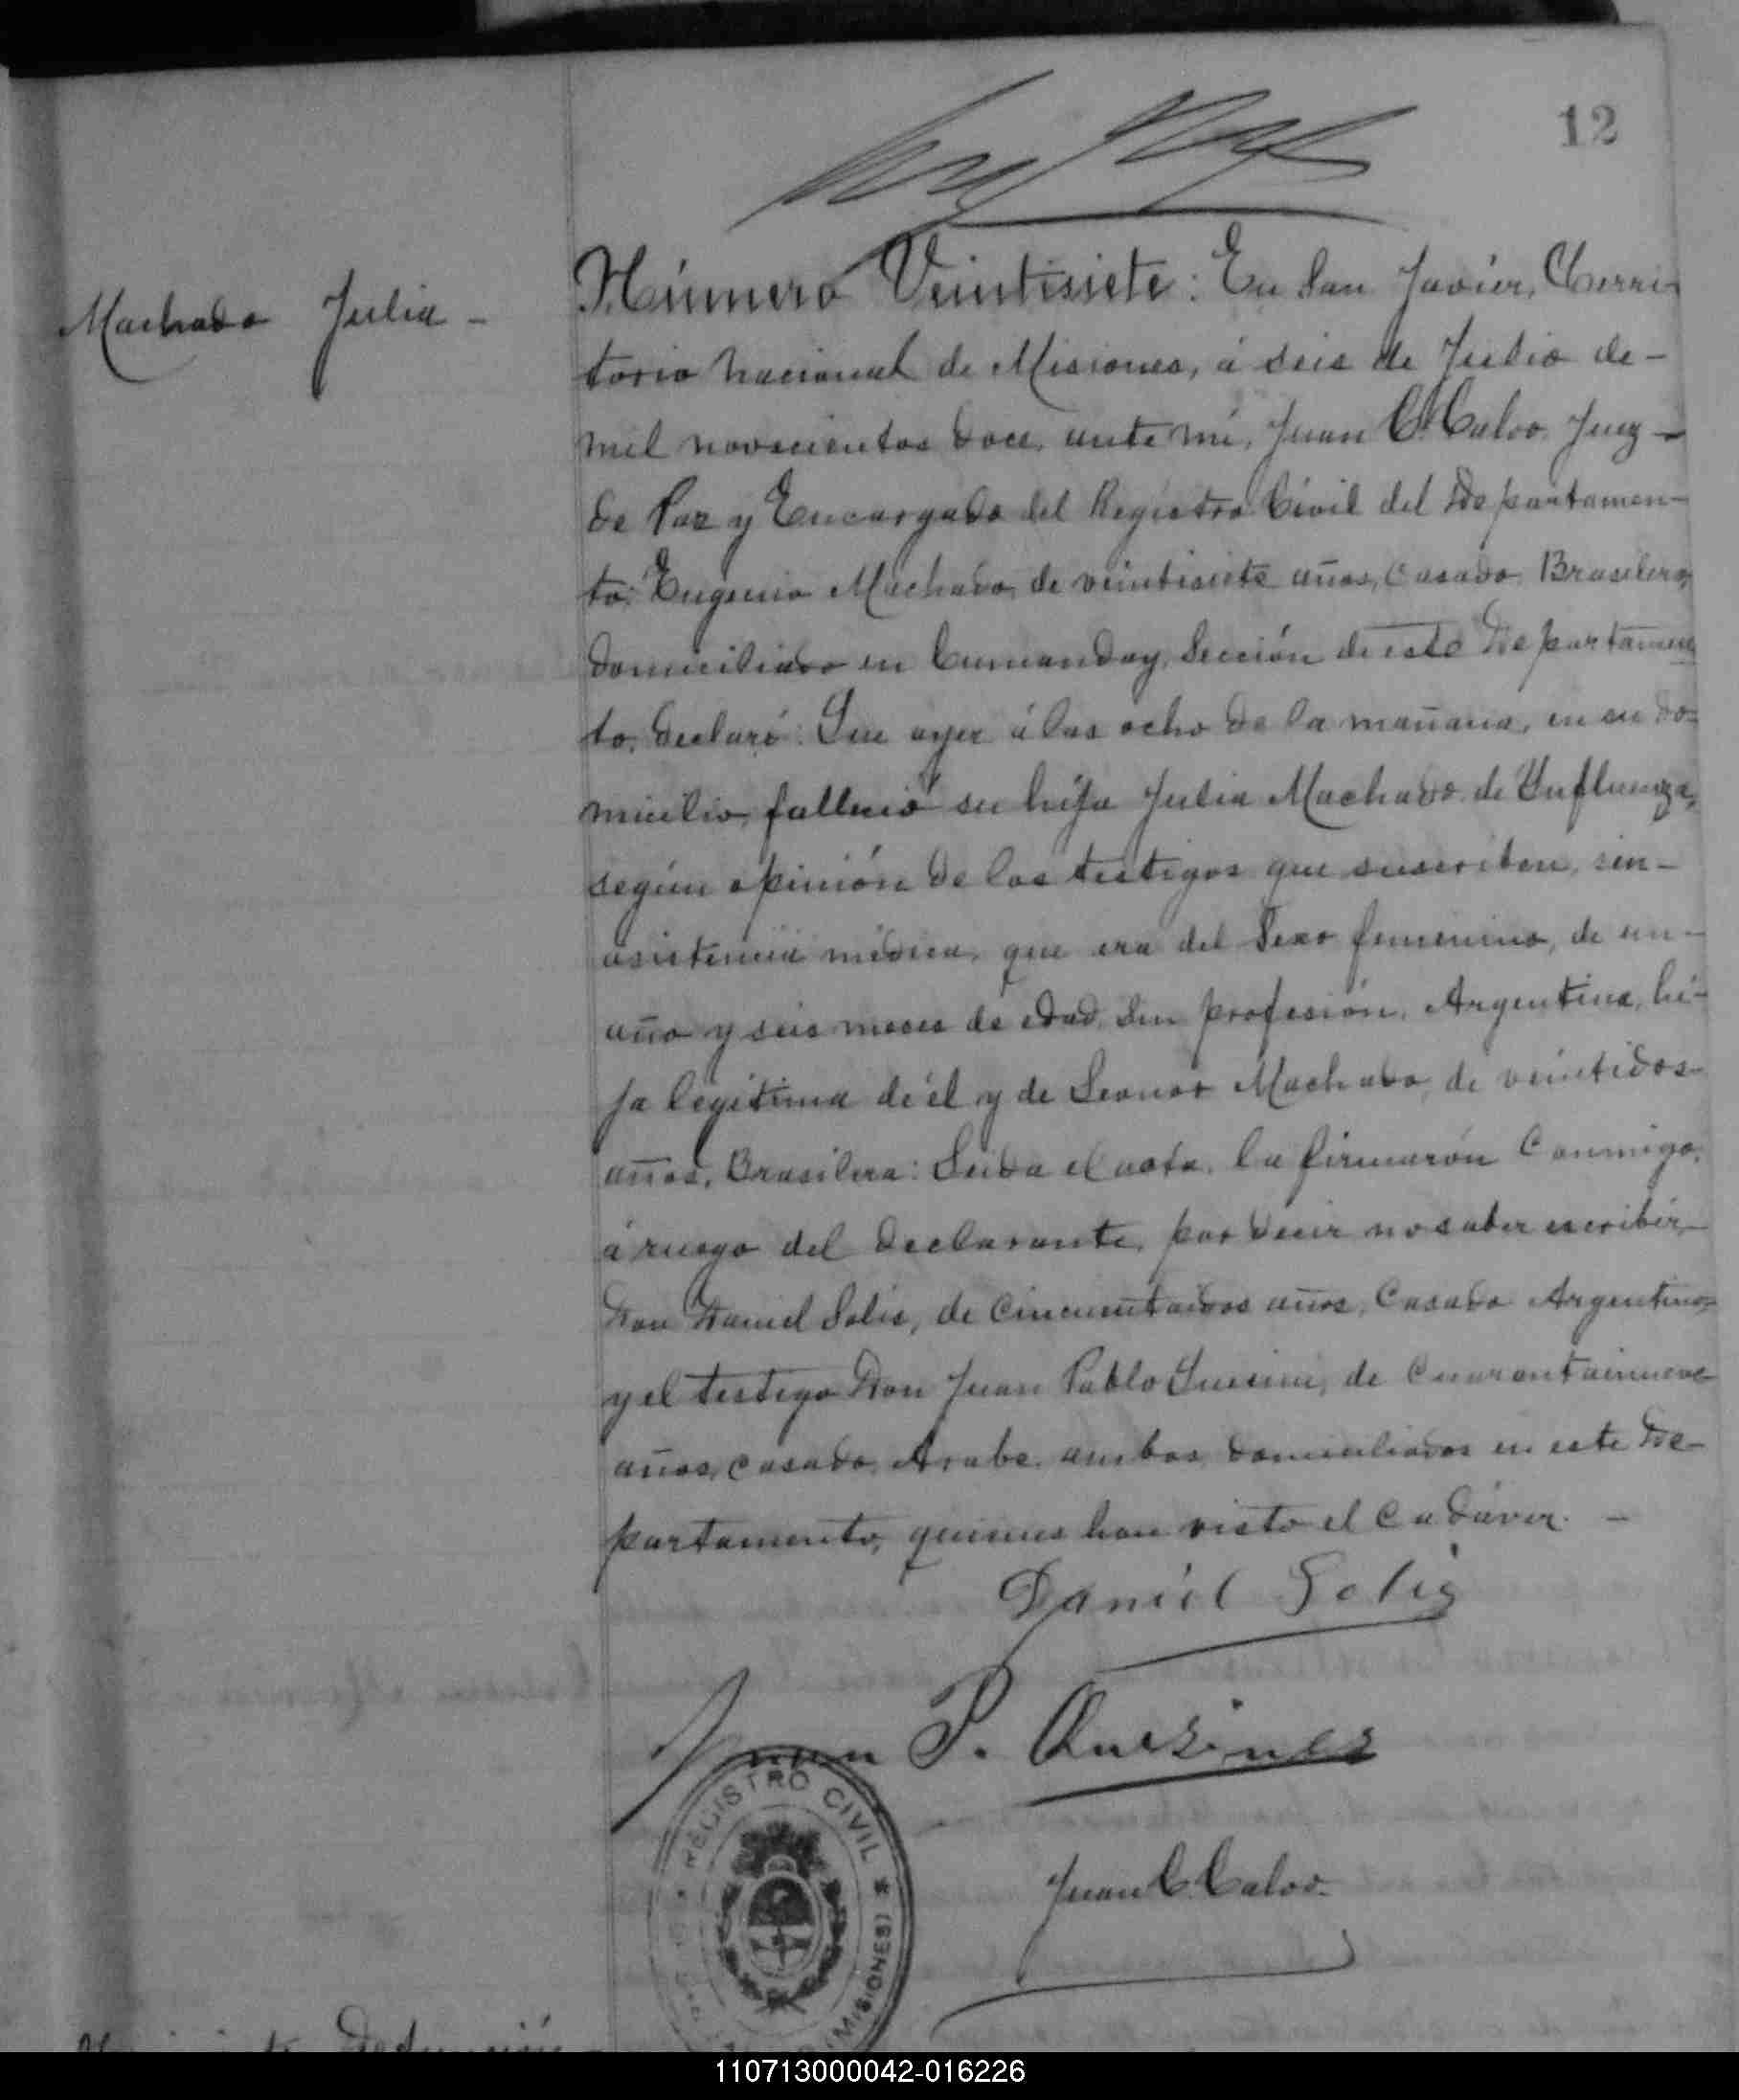 12
Machado Julia -
Número Veintisiete: En San Javier, Terri-
torio nacional de Misiones, á seis de Julio de -
mil novecientos doce, ante mí, Juan C. Calvo, Juez -
de Paz y Encargado del Registro Civil del Departamen-
to: Eugenio Machado, de veintisiete años, casado, Brasilero,
domiciliado en Cumanday, Sección de este Departamen
to, declaró: Que ayer á las ocho de la mañana, en su do-
micilio, falleció su hija Julia Machado, de Ynfluenza,
según opinión de los testigos que suscriben, sin -
asistencia médica, que era del Sexo femenino, de un -
año y seis meses de edad, Sin profesión, Argentina, hi-
ja legítima de él y de Leonor Machado, de veintidos -
años, Brasilera: Leida el acta, la firmarón Conmigo,
á ruego del declarante, por decir no saber escribir -
Don Daniel Solis, de Cincuentaidos años, Casado Argentino,
y el testigo Don Juan Pablo, de Cuarentainueve
años, casado, Arabe, ambos domiciliados en este De-
partamento, quienes han visto el Cadáver. -
Daniel Solis
Juan P.
REGISTRO CIVIL
(MISIONES)
Juan C. Calvo.
Defunción
110713000042-016226